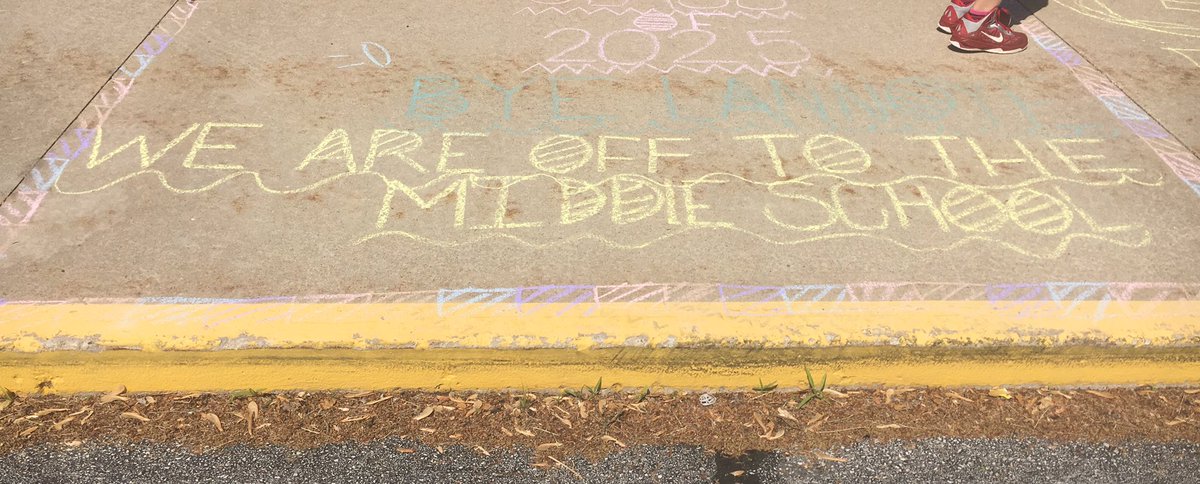 2025
BYE
WE ARE OFF TO THE
MIDDLE SCHOOL